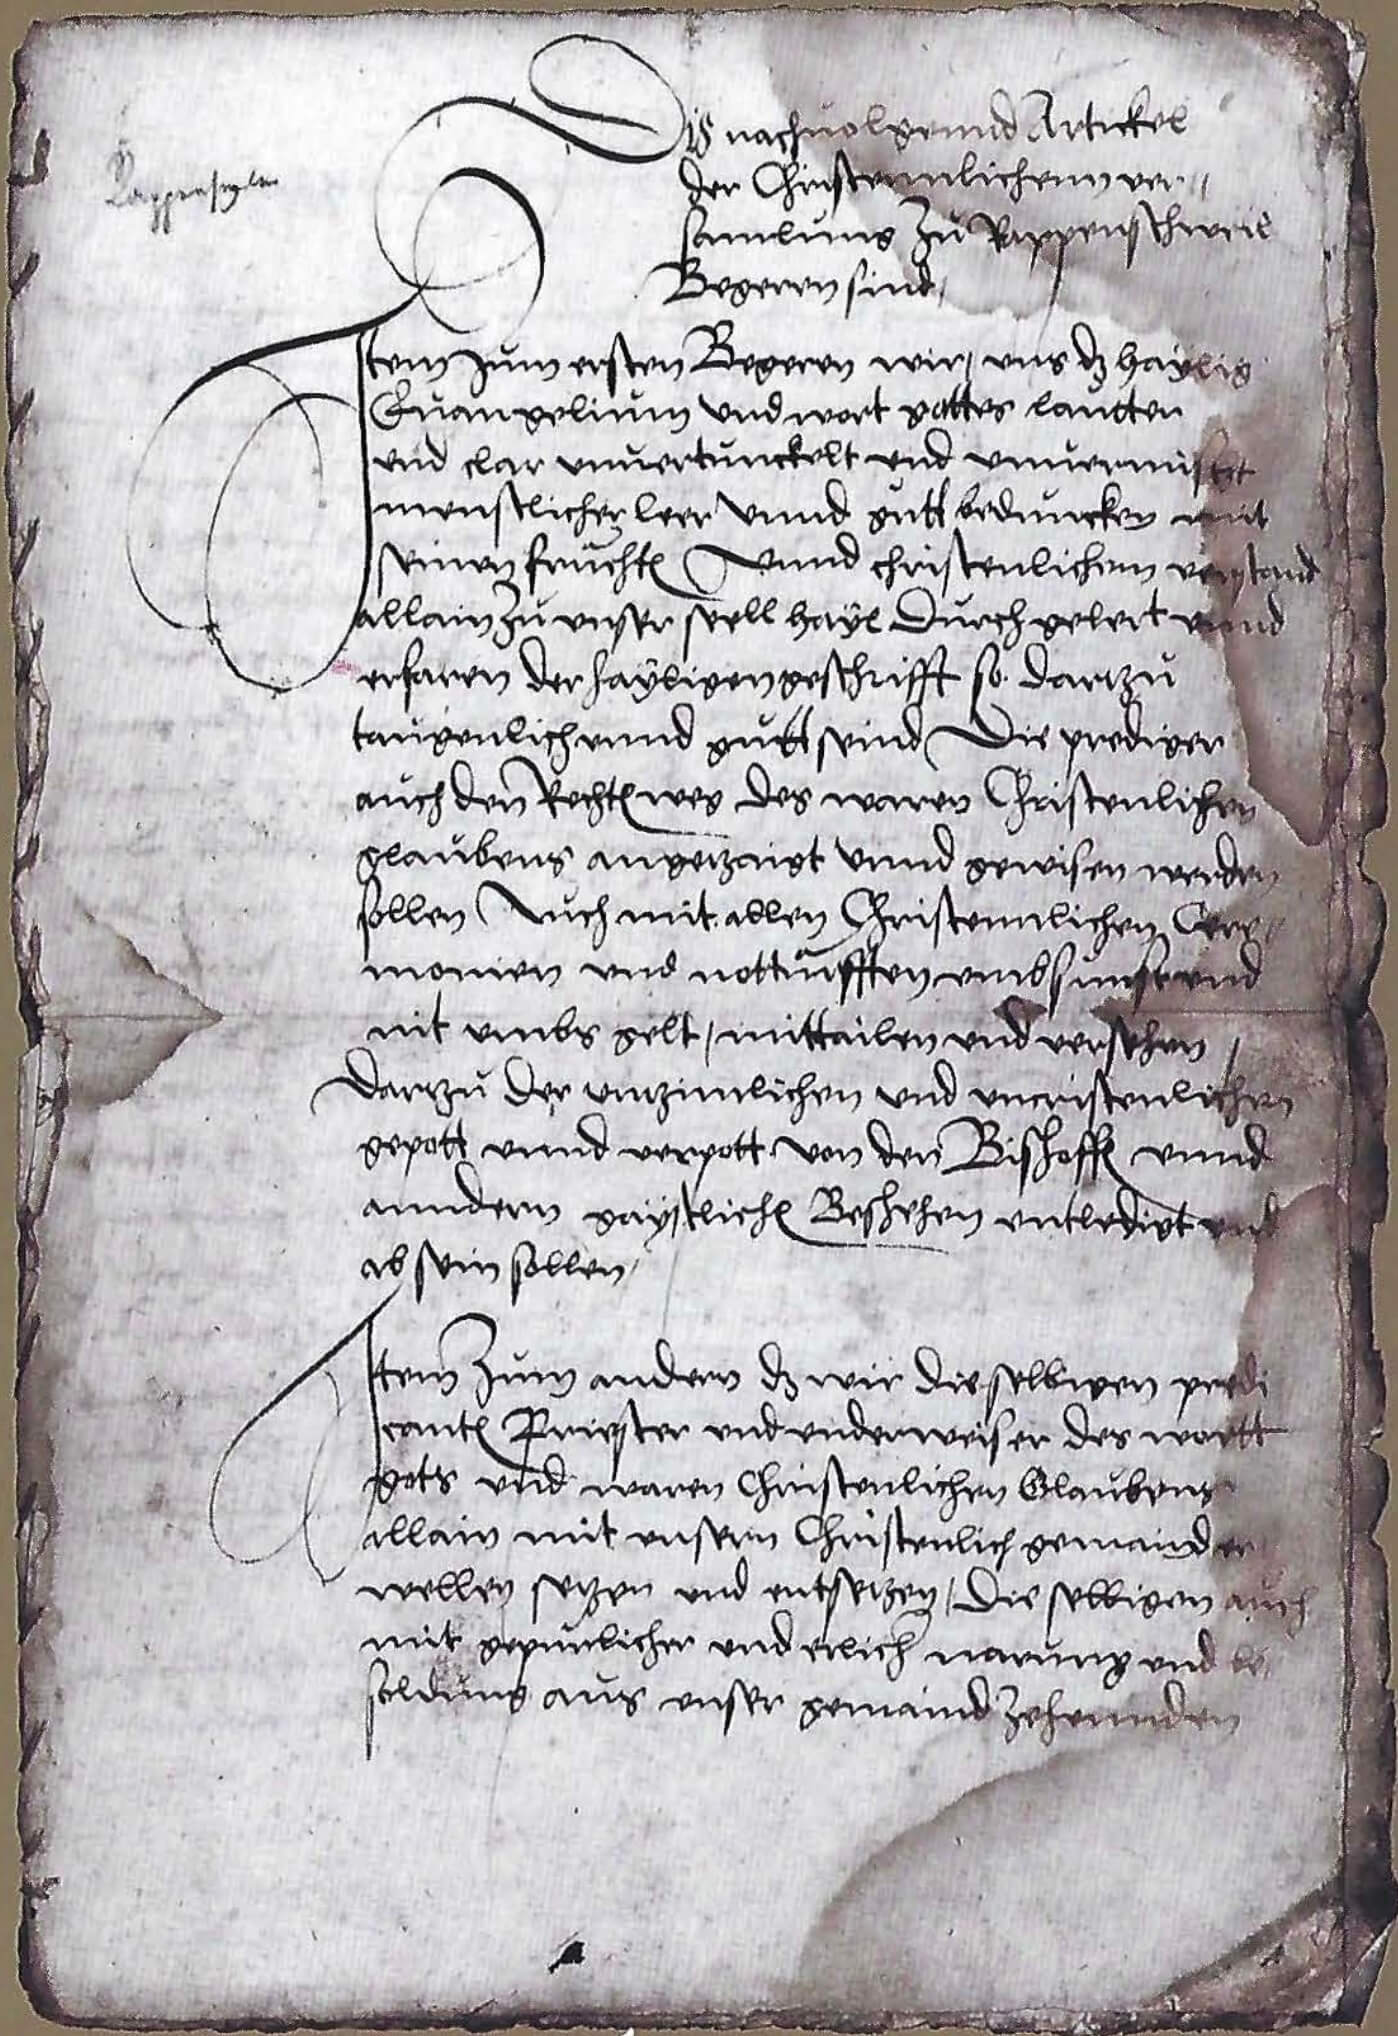 Dis nachuolgennd Artickel
der Christennlichenn ver-
samlung zu Rappenschweie
Begeren sind,
Item zum ersten Begeren wir, uns dz haÿlig
Euangelium vnd wort gottes lautter
vnd clar vnuertunckelt vnd vnuermischt
menschlicher leer vnnd gutt beduncken mit
seinen fruchten vnnd christenlichem verstand
allain zu vnser seell haÿl Durch gelert vnnd
erfaren der haÿligen geschrifft so dartzu
taugenlich vnnd gutt seind Die prediger
auch den Rechten weg des waren Christenlichen
glaubens angetzaigt vnnd gewisen werden
sollen Auch mit allen Christennlichen Cere-
monien vnd notturfften vmbsunst vnd
nit vmbs gelt, mittailen vnd versehen
Dartzu der vnzimlichen vnd vncristenlichen
gepott vnnd verpott von den Bischoffen vnnd
anndern gaÿstlichen Beschehen entledigt vnd
ab sein sollen,
Item Zum andern dz wir die selbigen predi
canten Priester vnd vnderweiser des wortt
gots vnd waren Christenlichen Glaubens
allain mit vnsern Christenlich gemainder
wellen setzen vnd entsetzen, Die selbigen auch
mit gepurlicher vnd erlich narung vnd be-
soldung aus vnser gemaind Zehennden